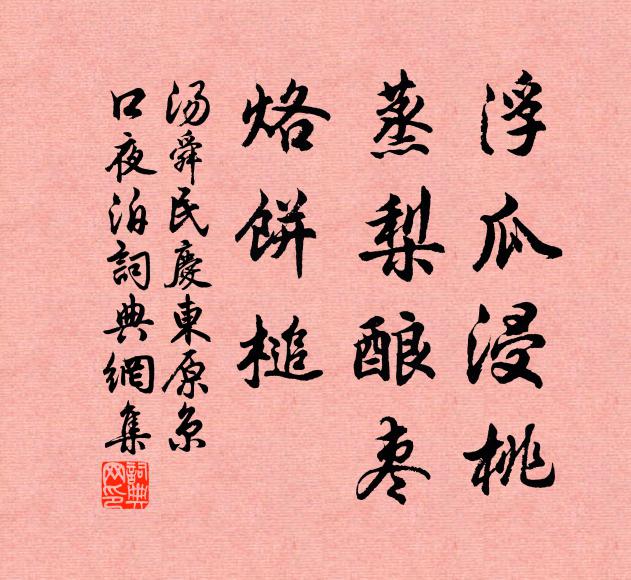 浮瓜浸桃
蒸梨酿枣
烙餅槌
汤舜民慶東原京
口夜泊詞典網集
詞典
网印